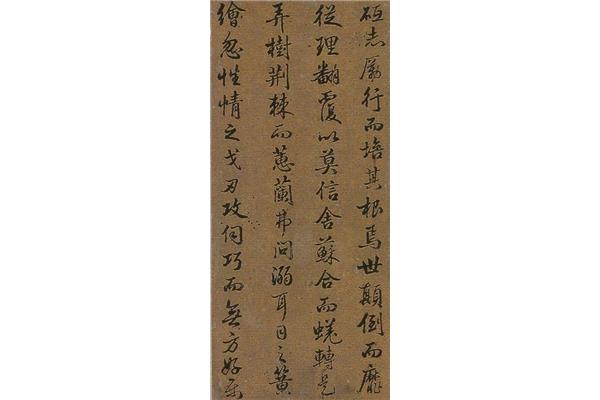 砥志厲行而培其根焉世顛倒而靡
從理翻覆以莫信舍蘇合而蜣轉是
弄樹荆棘而蕙蘭弗問溺耳目之簧
繪忽性情之戈刃攻伺巧而無方好惡